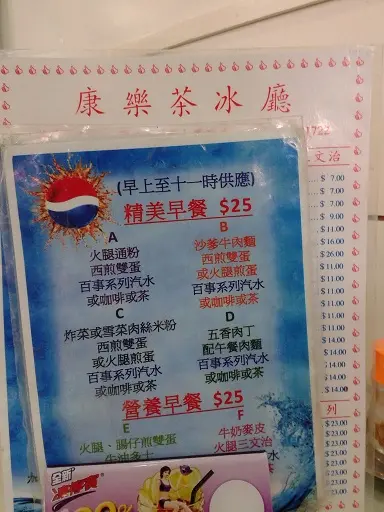 康樂茶冰廳
1722
文治
(早上至十一時供應)
精美早餐 $25
A
火腿通粉
西煎雙蛋
百事系列汽水
或咖啡或茶
B
沙爹牛肉麵
西煎雙蛋
或火腿煎蛋
百事系列汽水
或咖啡或茶
C
炸菜或雪菜肉絲米粉
西煎雙蛋
或火腿煎蛋
百事系列汽水
或咖啡或茶
D
五香肉丁
配午餐肉麵
百事系列汽水
或咖啡或茶
營養早餐 $25
E
火腿·腸仔煎雙蛋
牛油多士
F
牛奶麥皮
火腿三文治
$ 7.00
$ 7.00
$ 7.00
$ 9.00
$ 11.00
$ 16.00
$ 26.00
$ 11.00
$ 11.00
$ 11.00
$ 11.00
$ 11.00
$ 14.00
$ 14.00
$ 14.00
$ 14.00
列
$ 23.00
$ 23.00
$ 23.00
$ 23.00
全新